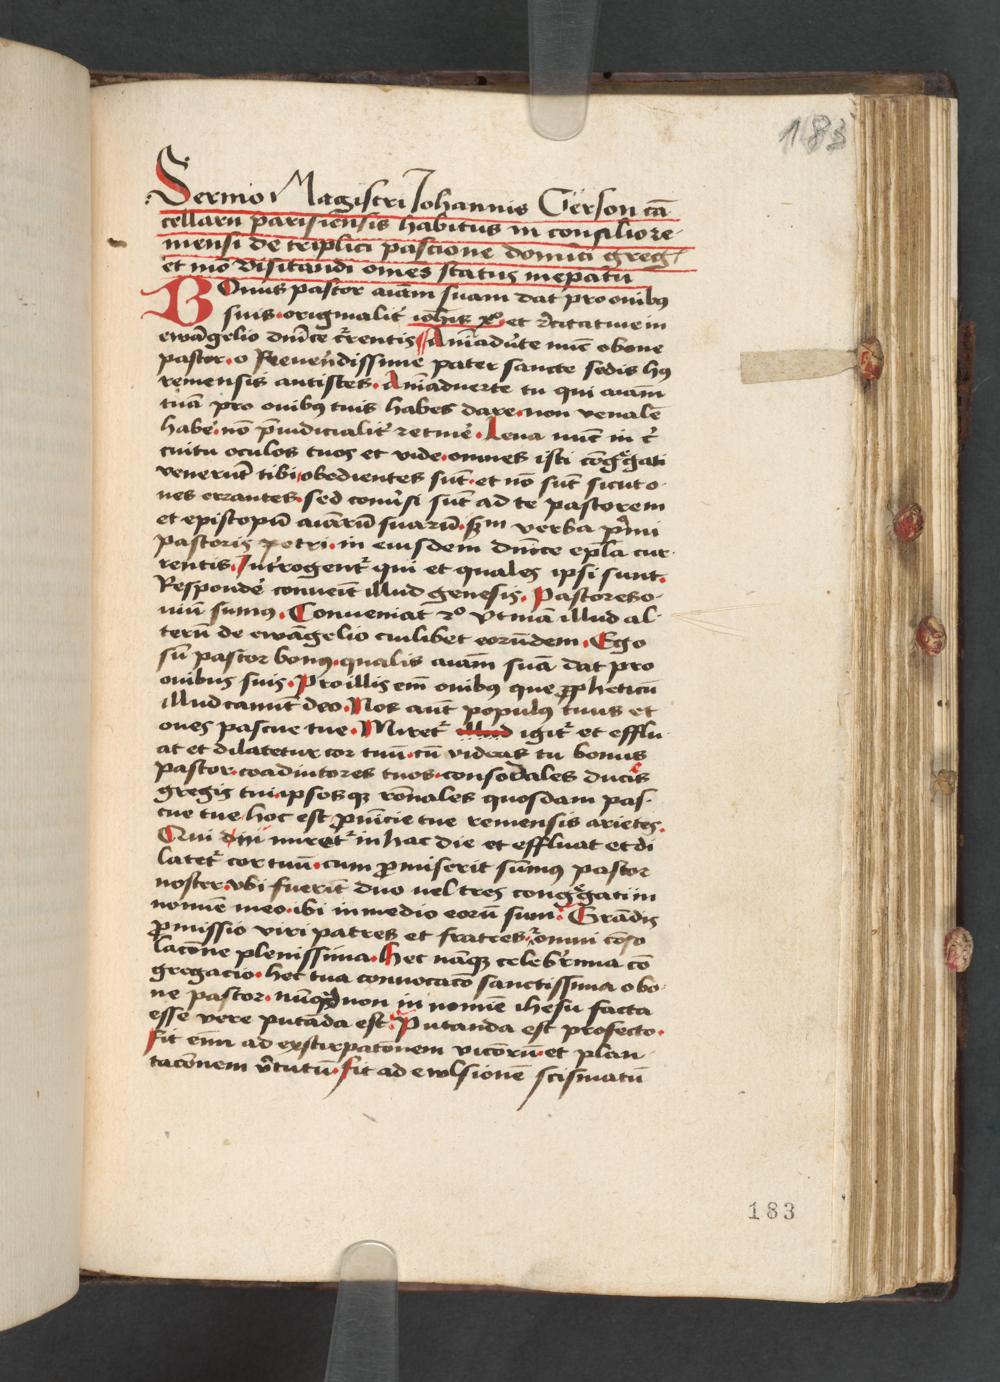 183
Sermo Magistri Johannis Gerson cā
cellarii parisiensis habitus in consilio re-
mensi de triplici pascione dominici greg̃
et mō visitandi om̄es status in ep̄atu
BOnus pastor aīam suam dat pro ouibus
suis. originalit̃ ioh̄is x° et r̃citatiue in
ewāgelio dn̄ice c̃rentis Aīaduerte nūc o bone
pastor. o Reuerēdissime pater sancte sedis huiꝰ
remensis antistes. Aīaduerte tu qui aīam
tuā pro ouibꝫ tuis habes dare. non venalē
habē. nō p̄iudicialit̃ retinē. Leua nūc in c̃
cuitu oculos tuos et vide. omnes isti cōg̃gati
venerūt tibi obedientes sūt. et nō sūt sicut o-
ues errantes. sed conũsi sūt ad te pastorem
et episcopū aīarū suarū. scd̄m verba p̃mi
pastoris petri. in eiusdem dn̄ice ep̄la cur-
rentis. Int̃rogent᷑ qui et quales ipsi sunt.
Respondē conuenit illud genesis. Pastores o-
uiū sumꝰ. Conueniat r° vtinā illud al-
terū de ewāgelio cuilibet eorūdem. Ego
sū pastor bonꝰ. qualis aīam suā dat pro
ouibus suis. Pro illis em̄ ouibꝫ que ꝓpheticū
illud canūt deo. Nos aūt populꝰ tuus et
oues pascue tue. Miret᷑ illud igit᷑ et efflu-
at et dilatetur cor tuū. cū videas tu bonus
pastor. coadiutores tuos. consodales duces
gregis tui. ipsosqꝫ rōnales quosdam pas-
cue tue. hoc est ꝓuīcie tue remensis arietes.
Qui diu miret᷑ in hac die et effluat et di
latet᷑ cor tuū. cum ꝓmiserit sūmus pastor
noster. vbi fuerīt duo vel tres congg̃gati in
nomīe meo. ibi in medio eorū sum. Grādis
ꝓmissio viri patres et fratres. omni cōso
lacōne plenissima. Hec nāqꝫ celeb̃rima cō
gregacio. hec tua connocacō sanctissima o bo-
ne pastor. nūqd̃ non in nomīe ihesu facta
esse vere putāda est. Putanda est profecto.
Fit em̄ ad exstirpatōnem vicorū. et plan-
tacōnem v̄tutū. Fit ad ewlsionē scismatū
183